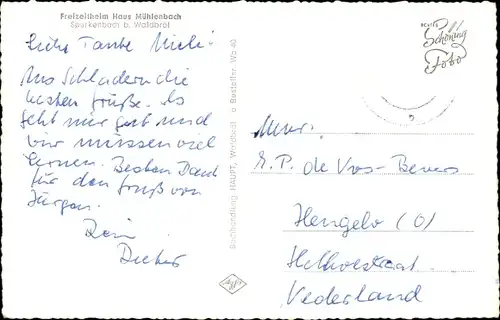 Freizeitheim Haus Mühlenbach
Spurkenbach b. Waldbröl
Liebe Tante Miele!
Aus Schladern die
besten Grüße. Es
geht mir gut und
wir müssen viel
lernen. Besten Dank
für den Gruß von
Jürgen.
Dein
Dieter
Buchhandlung HAUPT, Windhidt
Bestellnr. Wb 40
ECHTES
Schöning
Foto
Mevr.
E.P. de Vos-Bevers
Hengelo (O)
Nederland